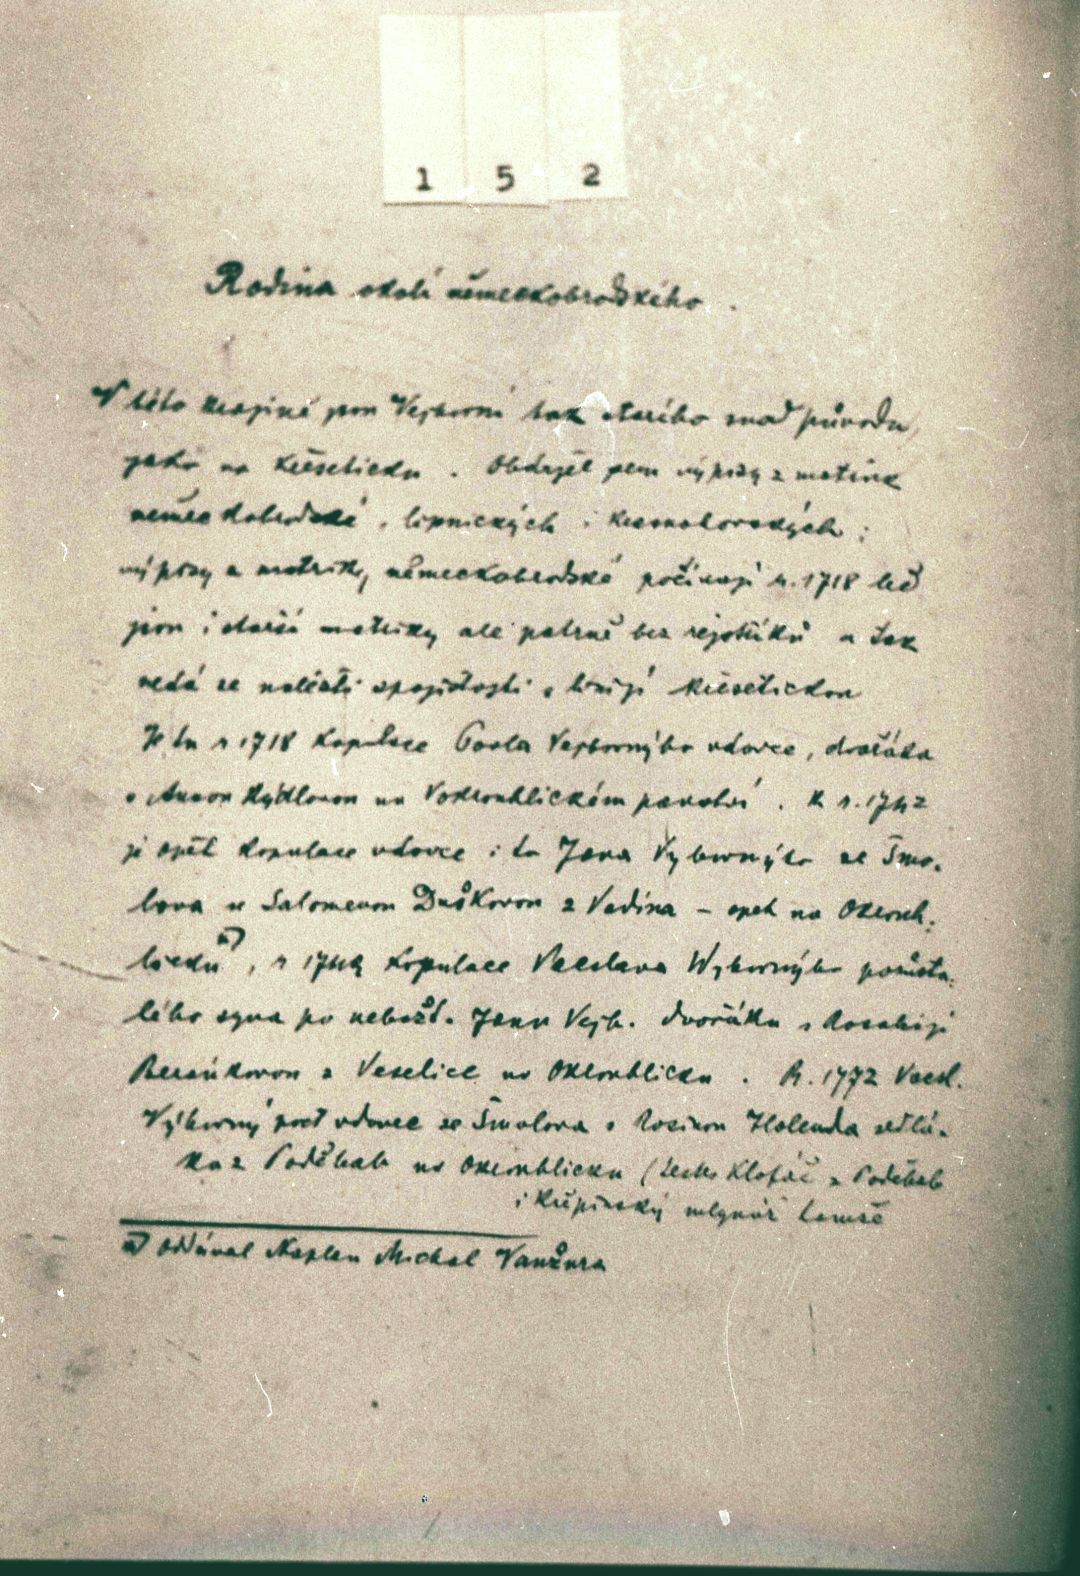 1 5 2
Rodina okolí německobrodského.
V této krajině jsou Vejborní tak starého snad původu,
jako na Křešeticku. Obdržel jsem výpisy z matrik
německobrodské, lipnických i krasnohorských;
výpisy z matriky německobrodské počínají r. 1718 leč
jsou i starší matriky ale patrně bez rejstříků a tak
nedá se nalézti spojitosti s linijí křešetickou
Je tu r 1718 kopulace Pavla Vejborného vdovce, dvořáka
s Annou Rýdlovou na Vokrouhlickém panství. R r. 1742
je opět kopulace vdovce i to Jana Vyborného ze Šmo-
lova se Salomenou Duškovou z Vadína – opět na Okrouh-
licku a), r 1749 kopulace Vaclava Wyborného pozůsta-
lého syna po nebožt. Janu Vejb. dvořáku s Rosalijí
Beránkovou z Veselice na Okrouhlicku. R. 1772 Vacsl.
Výborný poct vdovec ze Šmolova s Rosinou Holenda sedlá-
ka z Poděbab na Okrouhlicku (svědk. Klofáč z Poděbab
i Křipinský mlynář
a) Oddával Kaplan Michal Vanžura